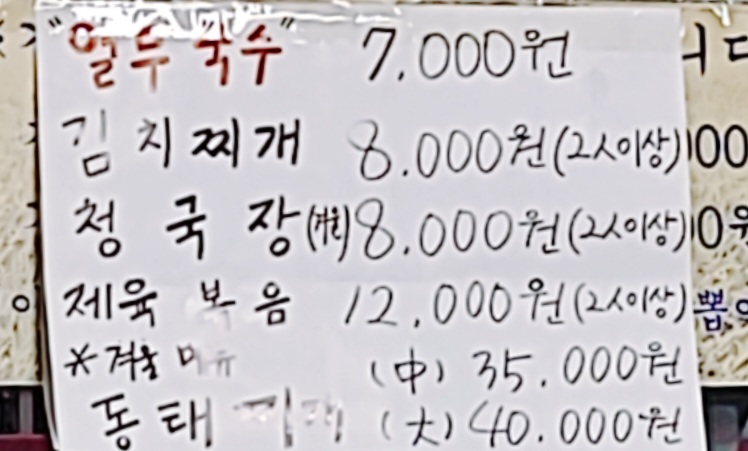 "열무국수" 7,000원
김치찌개 8,000원(2人이상)
청국장(겨울) 8,000원(2人이상)
제육볶음 12,000원(2人이상)
※겨울메뉴 (中) 35,000원
동태찌개 (大) 40,000원